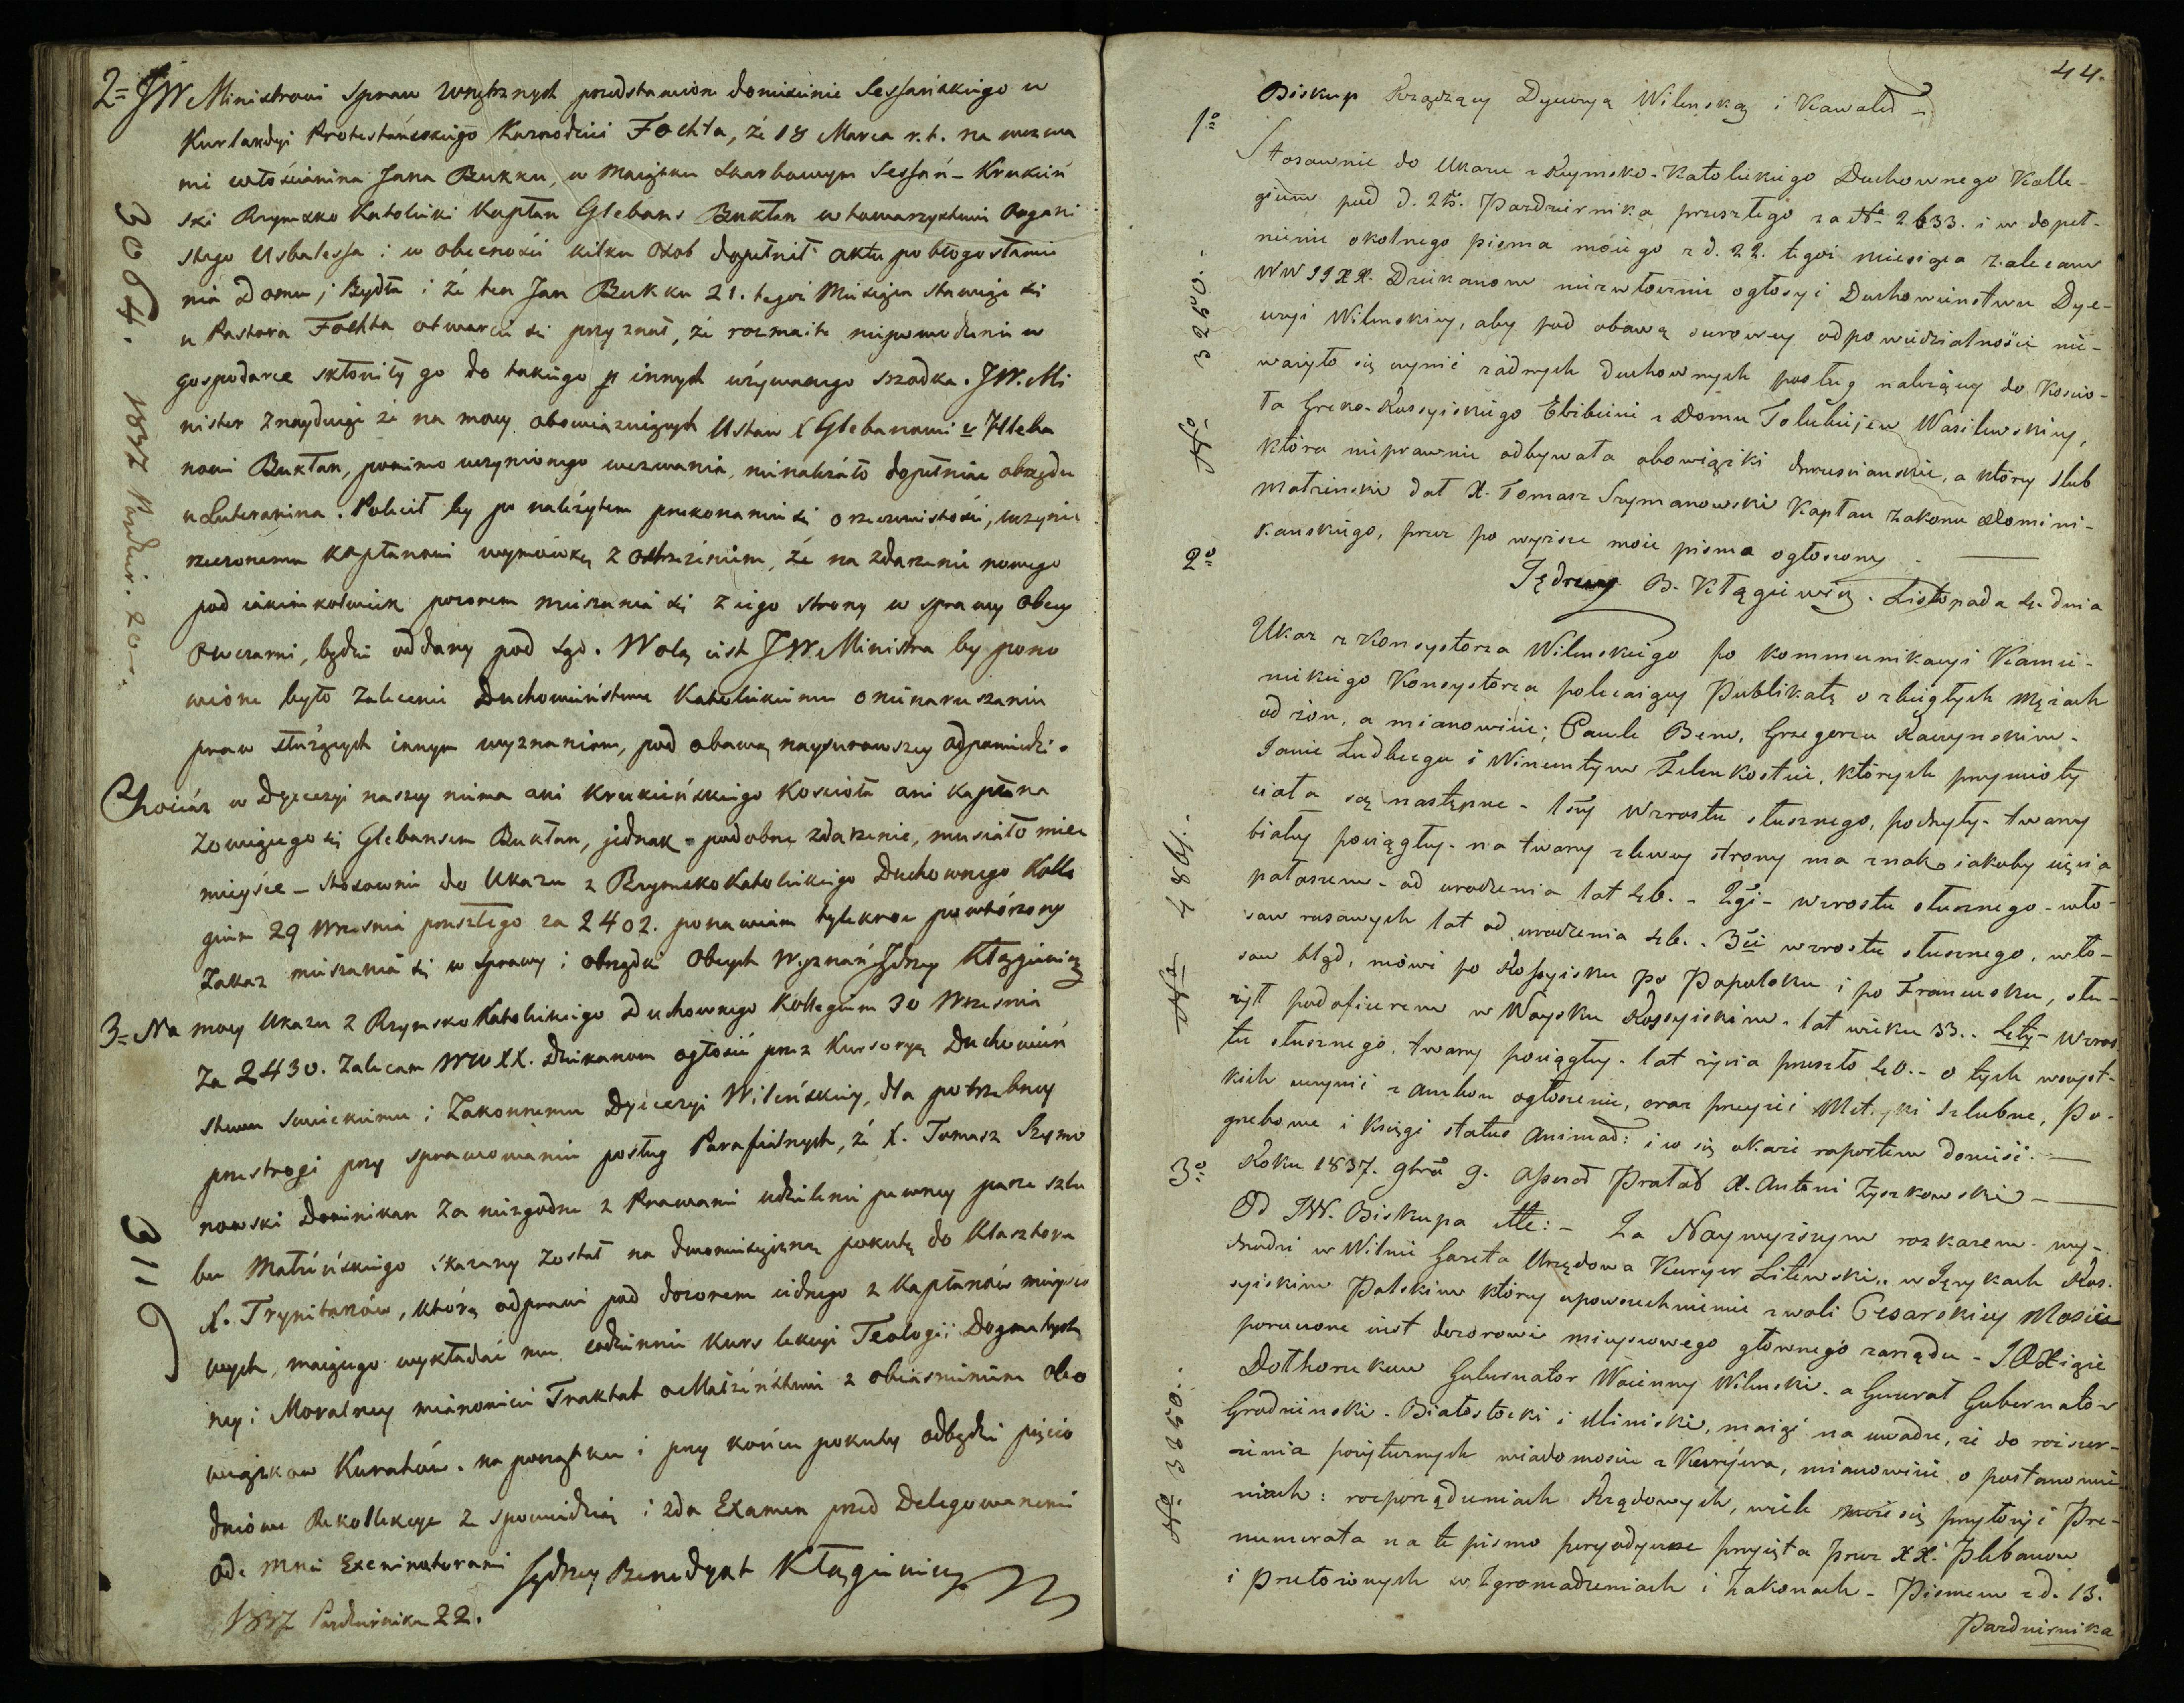 2= JW Ministrowi Spraw Wnętrznych przedstawion doniesienie Sessańskiego w
Kurlandyi Protestańckiego Kaznodziei Fochta, że 18 Marca r. t. na wezwa
nie włościanina Jana Bukku, w Maiątku Skarbowym Sessań-Krukiń
ski Rzymsko Katolicki Kapłan Glebans Bukłan w towarzystwie Organi
stego Usbalessa i w obecności kilku osob dopełnił aktu pobłogosławie
nia Domu i Bydła i że ten Jan Bukku 21. tegoż Miesiąca stawiąc się
u Pastora Fochta otwarcie się przyznał, że rozmaite niepowodzenie w
gospodarce skłoniły go do takiego innych używanego szrodka. JW. Mi
nister znayduiąc że na mocy obowiązuiących Ustaw X Glebanowi v Hleba
nowi Bukłan, pomimo uczynionego wezwania, nienależało dopełniać obrzędu
u Luteranina. Polecił by po należytem przekonaniu się o rzeczywistości, uczynić
rzeczonemu kapłanowi wymówkę z ostrzeżeniem, że na zdarzenie nowego
pod iakimkolwiek pozorem mieszania się z iego strony w sprawy obcey
Owczarni, będzie oddany pod sąd. Wolą iest JW. Ministra by pono
wione było zalecenie Duchowieństwu Katolickiemu o nienaruszaniu
praw służących innym wyznaniom, pod obawą naysurowszey odpowiedzi.
Chociaż w Dyecezyi naszey niema ani Krukińskiego Kościoła ani kapłana
zowiącego się Glebansem Bukłan, jednak podobne zdarzenie, musiało mieć
mieysce – stosownie do Ukazu z Rzymsko Katolickiego Duchownego Kolle
gium 29 Września przeszłego za 2402. ponawiam tylekroć powtórzony
zakaz mieszania się w sprawy i obrzędy obcych Wyznań Jędrzey Kłągiewicz
3= Na mocy Ukazu z Rzymsko Katolickiego Duchownego Kollegium 30 Września
za 2430. Zalecam WWXX. Dziekanom ogłosić przez Kursoryą Duchowień
stwu Swieckiemu i Zakonnemu Dyecezyi Wileńskiey, dla potrzebney
przestrogi przy sprawowaniu posług Parafialnych, że X. Tomasz Szyma
nowski Dominikan za niezgodne z Prawami udzielenie pewney parze szlu
bu Małżeńskiego skazany został na dwomiesięczną pokutę do Klasztora
X. Trynitarzów, którą odprawi pod dozorem iednego z Kapłanów mieysco
wych, maiącego wykładać mu codziennie kurs lekcyi Teologii Dogmatycz
ney i Moralney mianowicie Traktat o Małżeństwie z obiasnieniem obo
wiązkow Kuratów. na początku i przy końcu pokuty odbędzie pięcio
dniowe Rekollekcye ze spowiedzią i zda Examen przed Delegowanemi
ode mnie Exeminatorami Jędrzey Benedykt Kłągiewicz
1837 Października 22.
3064. 1837 Paździer. 20
3119
44.
Biskup Rządzący Dyecezyą Wilenską i Kawaler –
1o Stosownie do Ukazu z Rzymsko-Katolickiego Duchownego Kolle-
gium pod d. 25. Pazdziernika przeszłego za No 2633. i w dopeł-
nienie okolnego pisma moiego z d. 22. tegoż miesiąca zalecam
WW JJXX. Dziekanom niezwłocznie ogłosyć Duchowieństwu Dye-
cezyi Wilenskiey, aby pod obawą surowey odpowiedzialności nie-
ważyło się czynić żadnych duchownych posług należący do Koscio-
ła Greko-Rossyiskiego Ebibieni z Domu Tolubiejew Wasilewskiey,
która nieprawnie odbywała obowiązki chrzescianskie, a który slub
małzenski dał X. Tomasz Szymanowski Kapłan zakonu Domini-
kanskiego, przez po wyższe moie pisma ogłoszony –
Jędrzey B. Kłągiewicz. Listopada 4. dnia
No 3250.
2o Ukaz z Konsystorza Wilenskiego po kommunikacyi Kamie-
nieckiego Konsystorza polecaiący Publikatę o zbiegłych Mężach
od żon, a mianowicie; Pawle Bem, Grzegorzu Raczynskim.
Janie Ludbergu i Wincentym Felenkostcie, których przymioty
ciała są następne – 1szy Wzrostu słusznego, podszyty twarzy
białey pociągłey – na twarzy z lewey strony ma znak iakoby cięcia
pałaszem – od urodzenia lat 46. – 2gi – wzrostu słusznego – wło-
sow rusawych lat od urodzenia 46. – 3ci wzrostu słusznego, wło-
sow bląd, mówi po Rossyisku po Popolsku i po Francusku, słu-
żył podoficerem w Woysku Rossyiskim – lat wieku 33. – 4ty – wzros
tu słusznego, twarzy pociągłey – lat życia przeszło 40. – o tych wszyst-
kich uczynić z ambon ogłoszenie, oraz przeyżeć Metryki szlubne, Po-
grzebowe i Księgi status Animar: i co się okaże raportem donieść. –
Roku 1837. 9bra 9. Asessor Prałat X. Antoni Zyszkowski –
No 4864.
3o Od JW. Biskupa etc: – Za Naywyższym rozkazem wy-
chodzi w Wilnie Gazeta Urzędowa Kuryer Litewski, w Językach Ros.
syiskim Polskim który upowszechnienie z woli Cesarskiey Mości
poruczone iest dozorowi mieyscowego głownego zarządu – J.O.Xiąże
Dołhorukow Gubernator Woienny Wilenski. a Generał Gubernator
Grodnienski. Białostocki i Minski, maiąc na uwadze, że do rozszer-
zenia pożytecznych wiadomości z Kuryiera, mianowicie o postanowie
niach i rozporządzeniach Rządowych, wiele może się przyłożyć Pre-
numerata na te pismo peryodyczne przyięta przez XX. Plebanow
i Przełożonych w Zgromadzeniach i Zakonach – Pismem z d. 13.
Pazdziernika
No 3250.